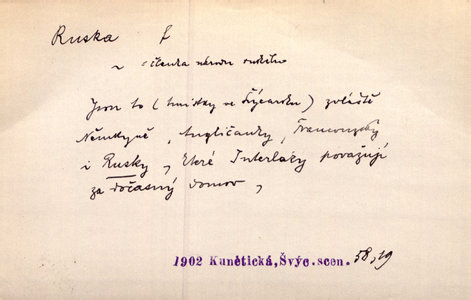 Ruska f
~ členka národu ruského
Jsou to (turistky ve Švýcarsku) zvláště
Němkyně, Angličanky, Francouzsky
i Rusky, které Interlaky považují
za dočasný domov,
1902 Kunětická, Švýc. scen. 58, 19